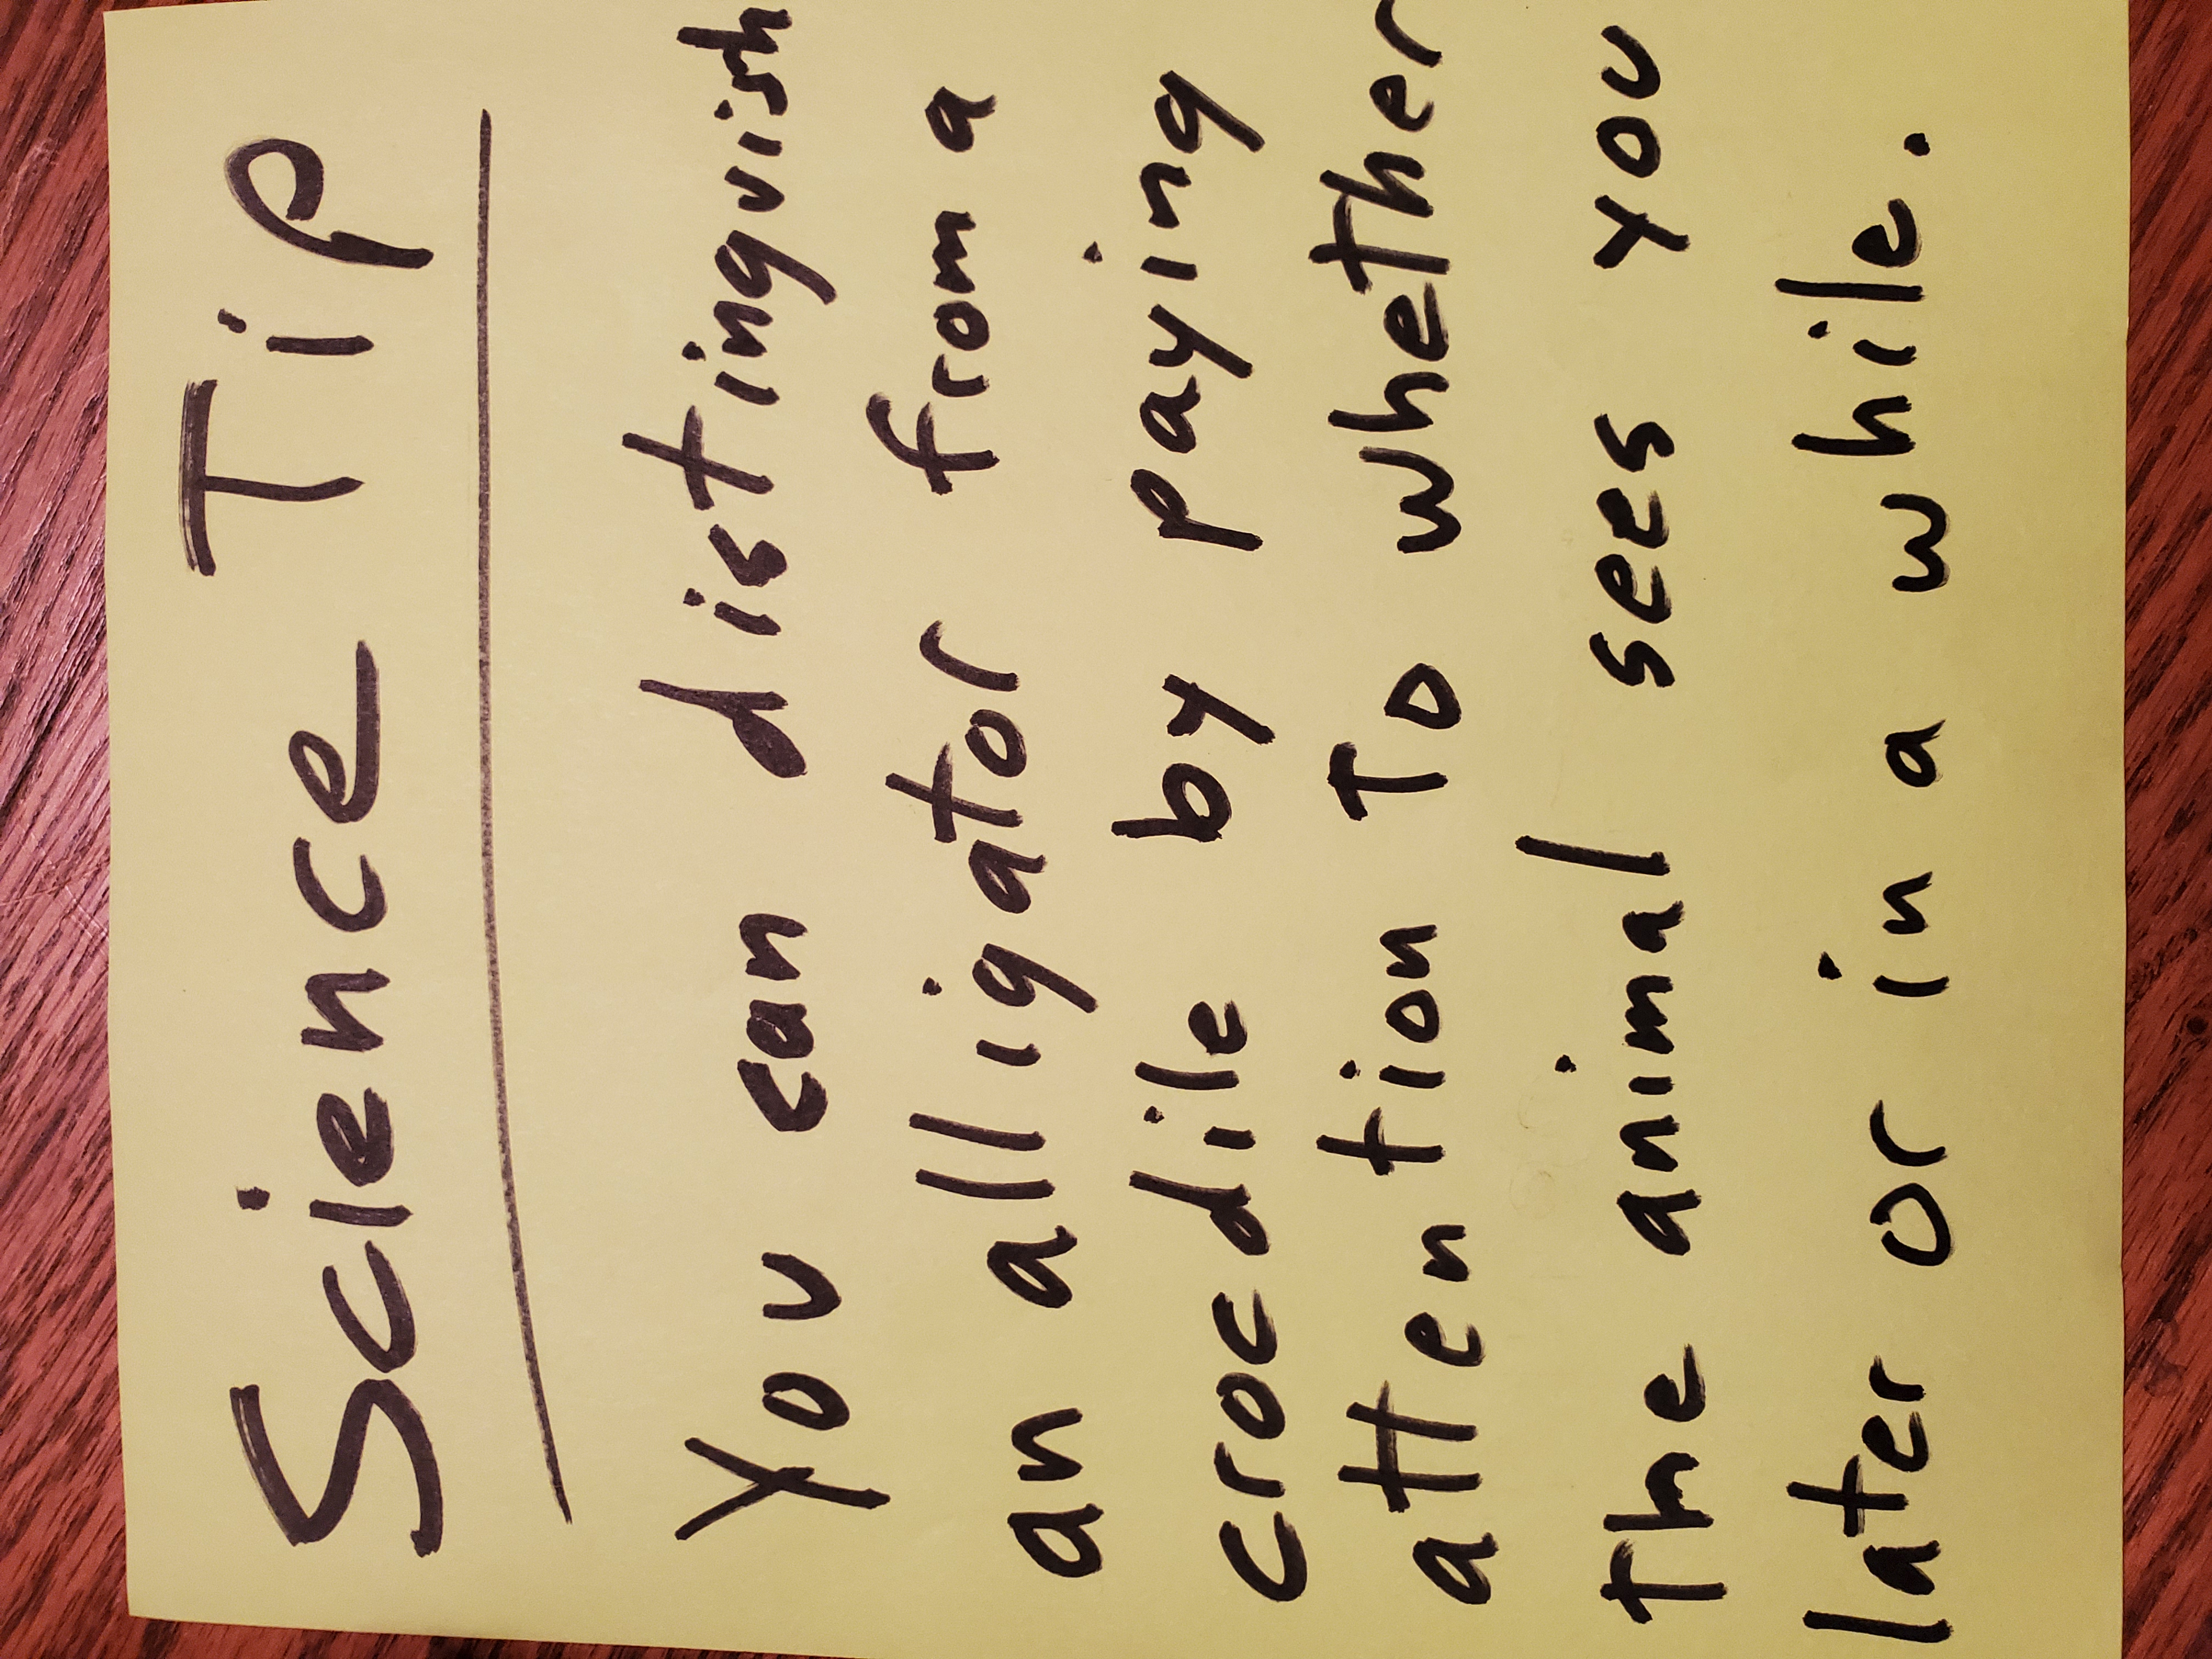 Science Tip
You can distinguish
an alligator from a
crocdile by paying
attention to whether
the animal sees you
later or in a while.